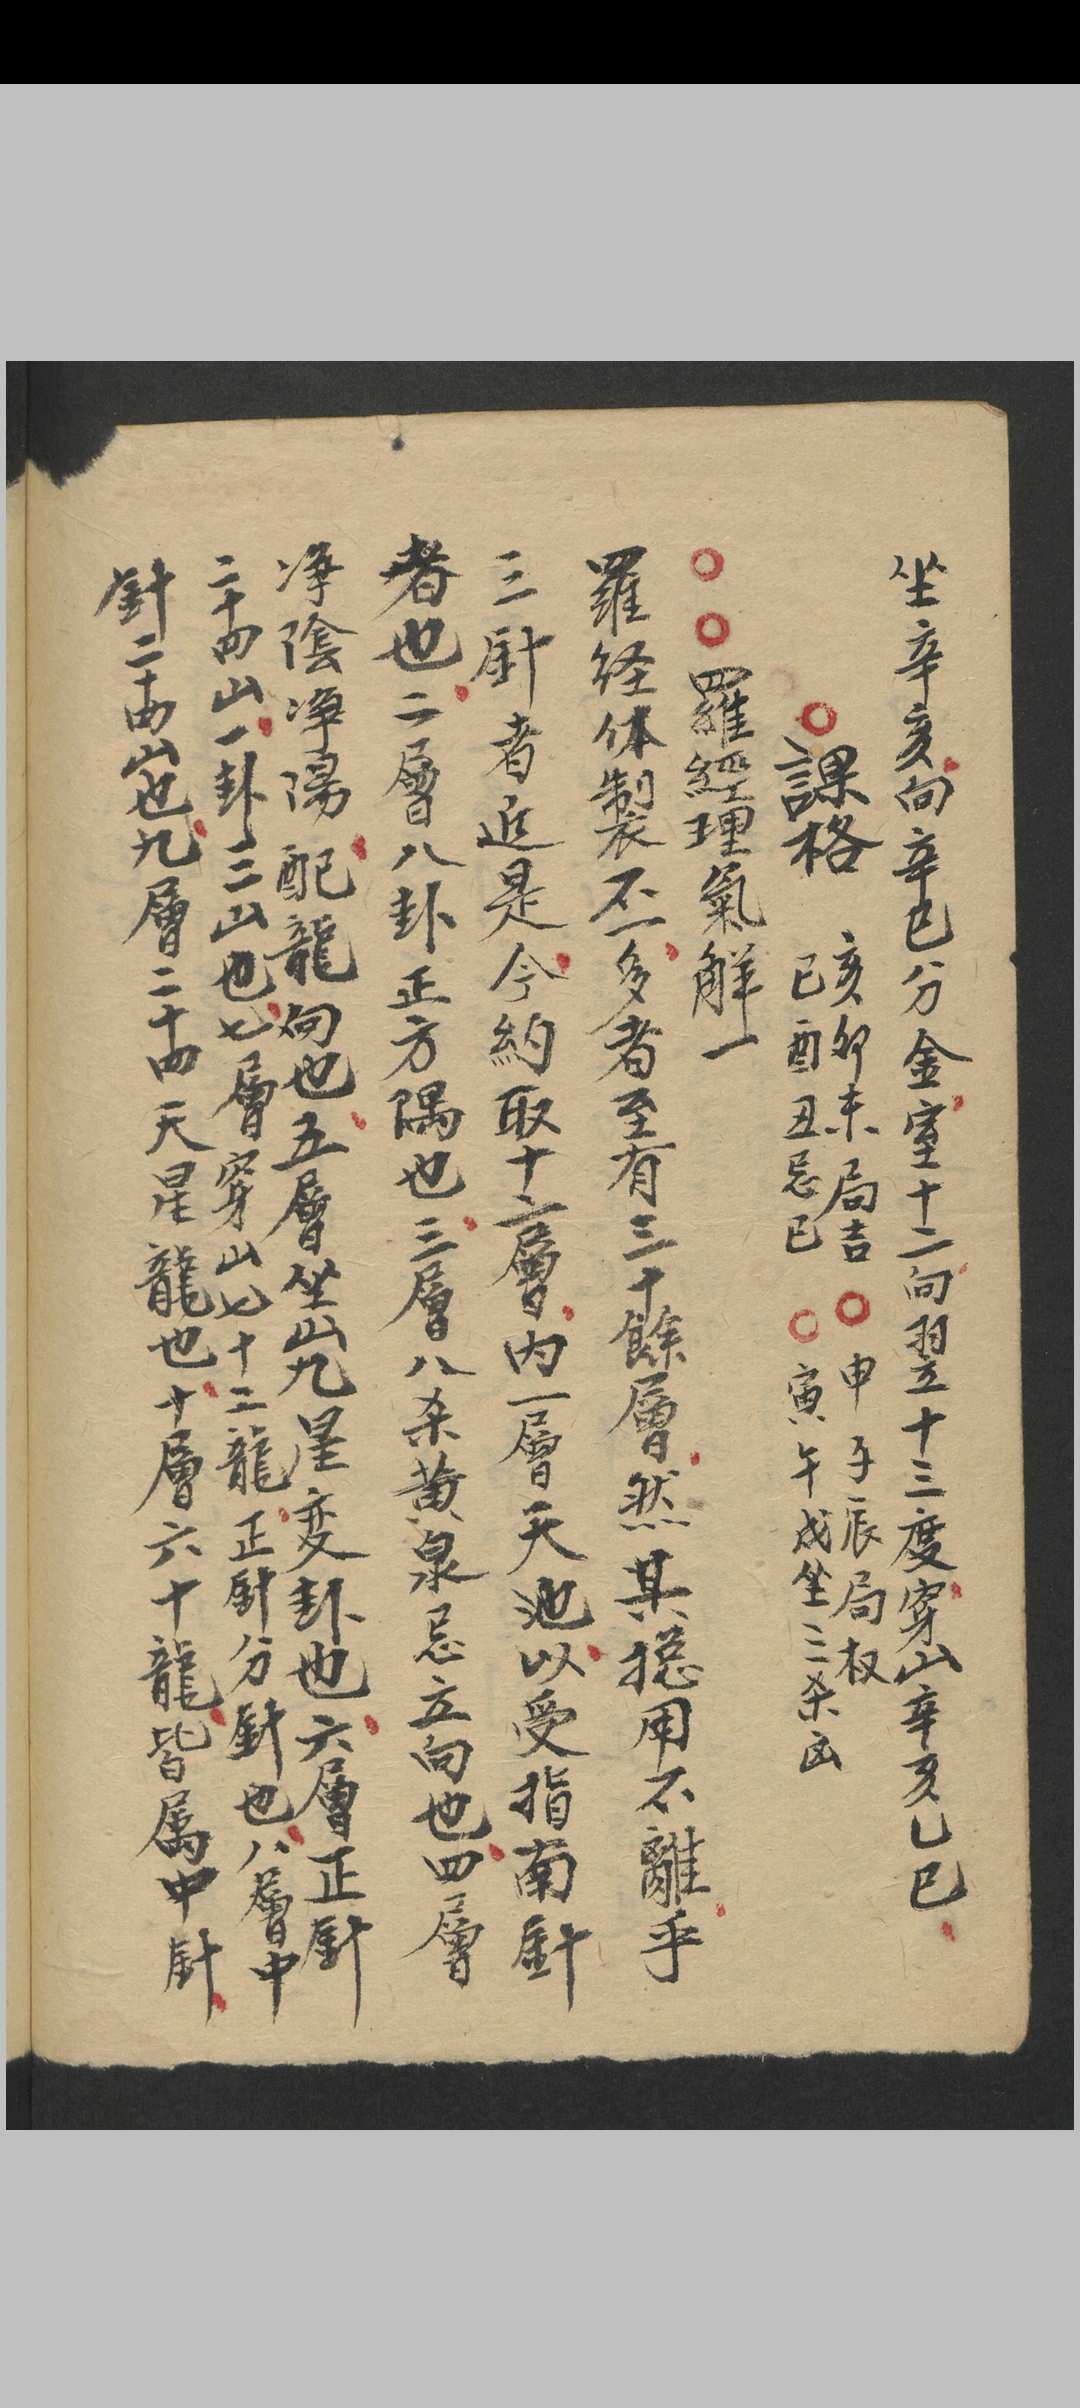 坐辛亥向辛巳分金室十二向翌十三度穿山辛亥乙巳
課格
亥卯未局吉
巳酉丑忌巳
申子辰局权
寅午戌坐三杀凶
羅經理氣解一
羅经体製不一多者至有三十餘層然其捴用不離乎
三針者近是今約取十二層内一層天池以受指南針
者也二層八卦正方隅也三層八杀黄泉忌立向也四層
净陰净陽配龍向也五層坐山九星变卦也六層正針
二十四山一卦三山也七層穿山七十二龍正針分針也八層中
針二十四山也九層二十四天星龍也十層六十龍皆属中針